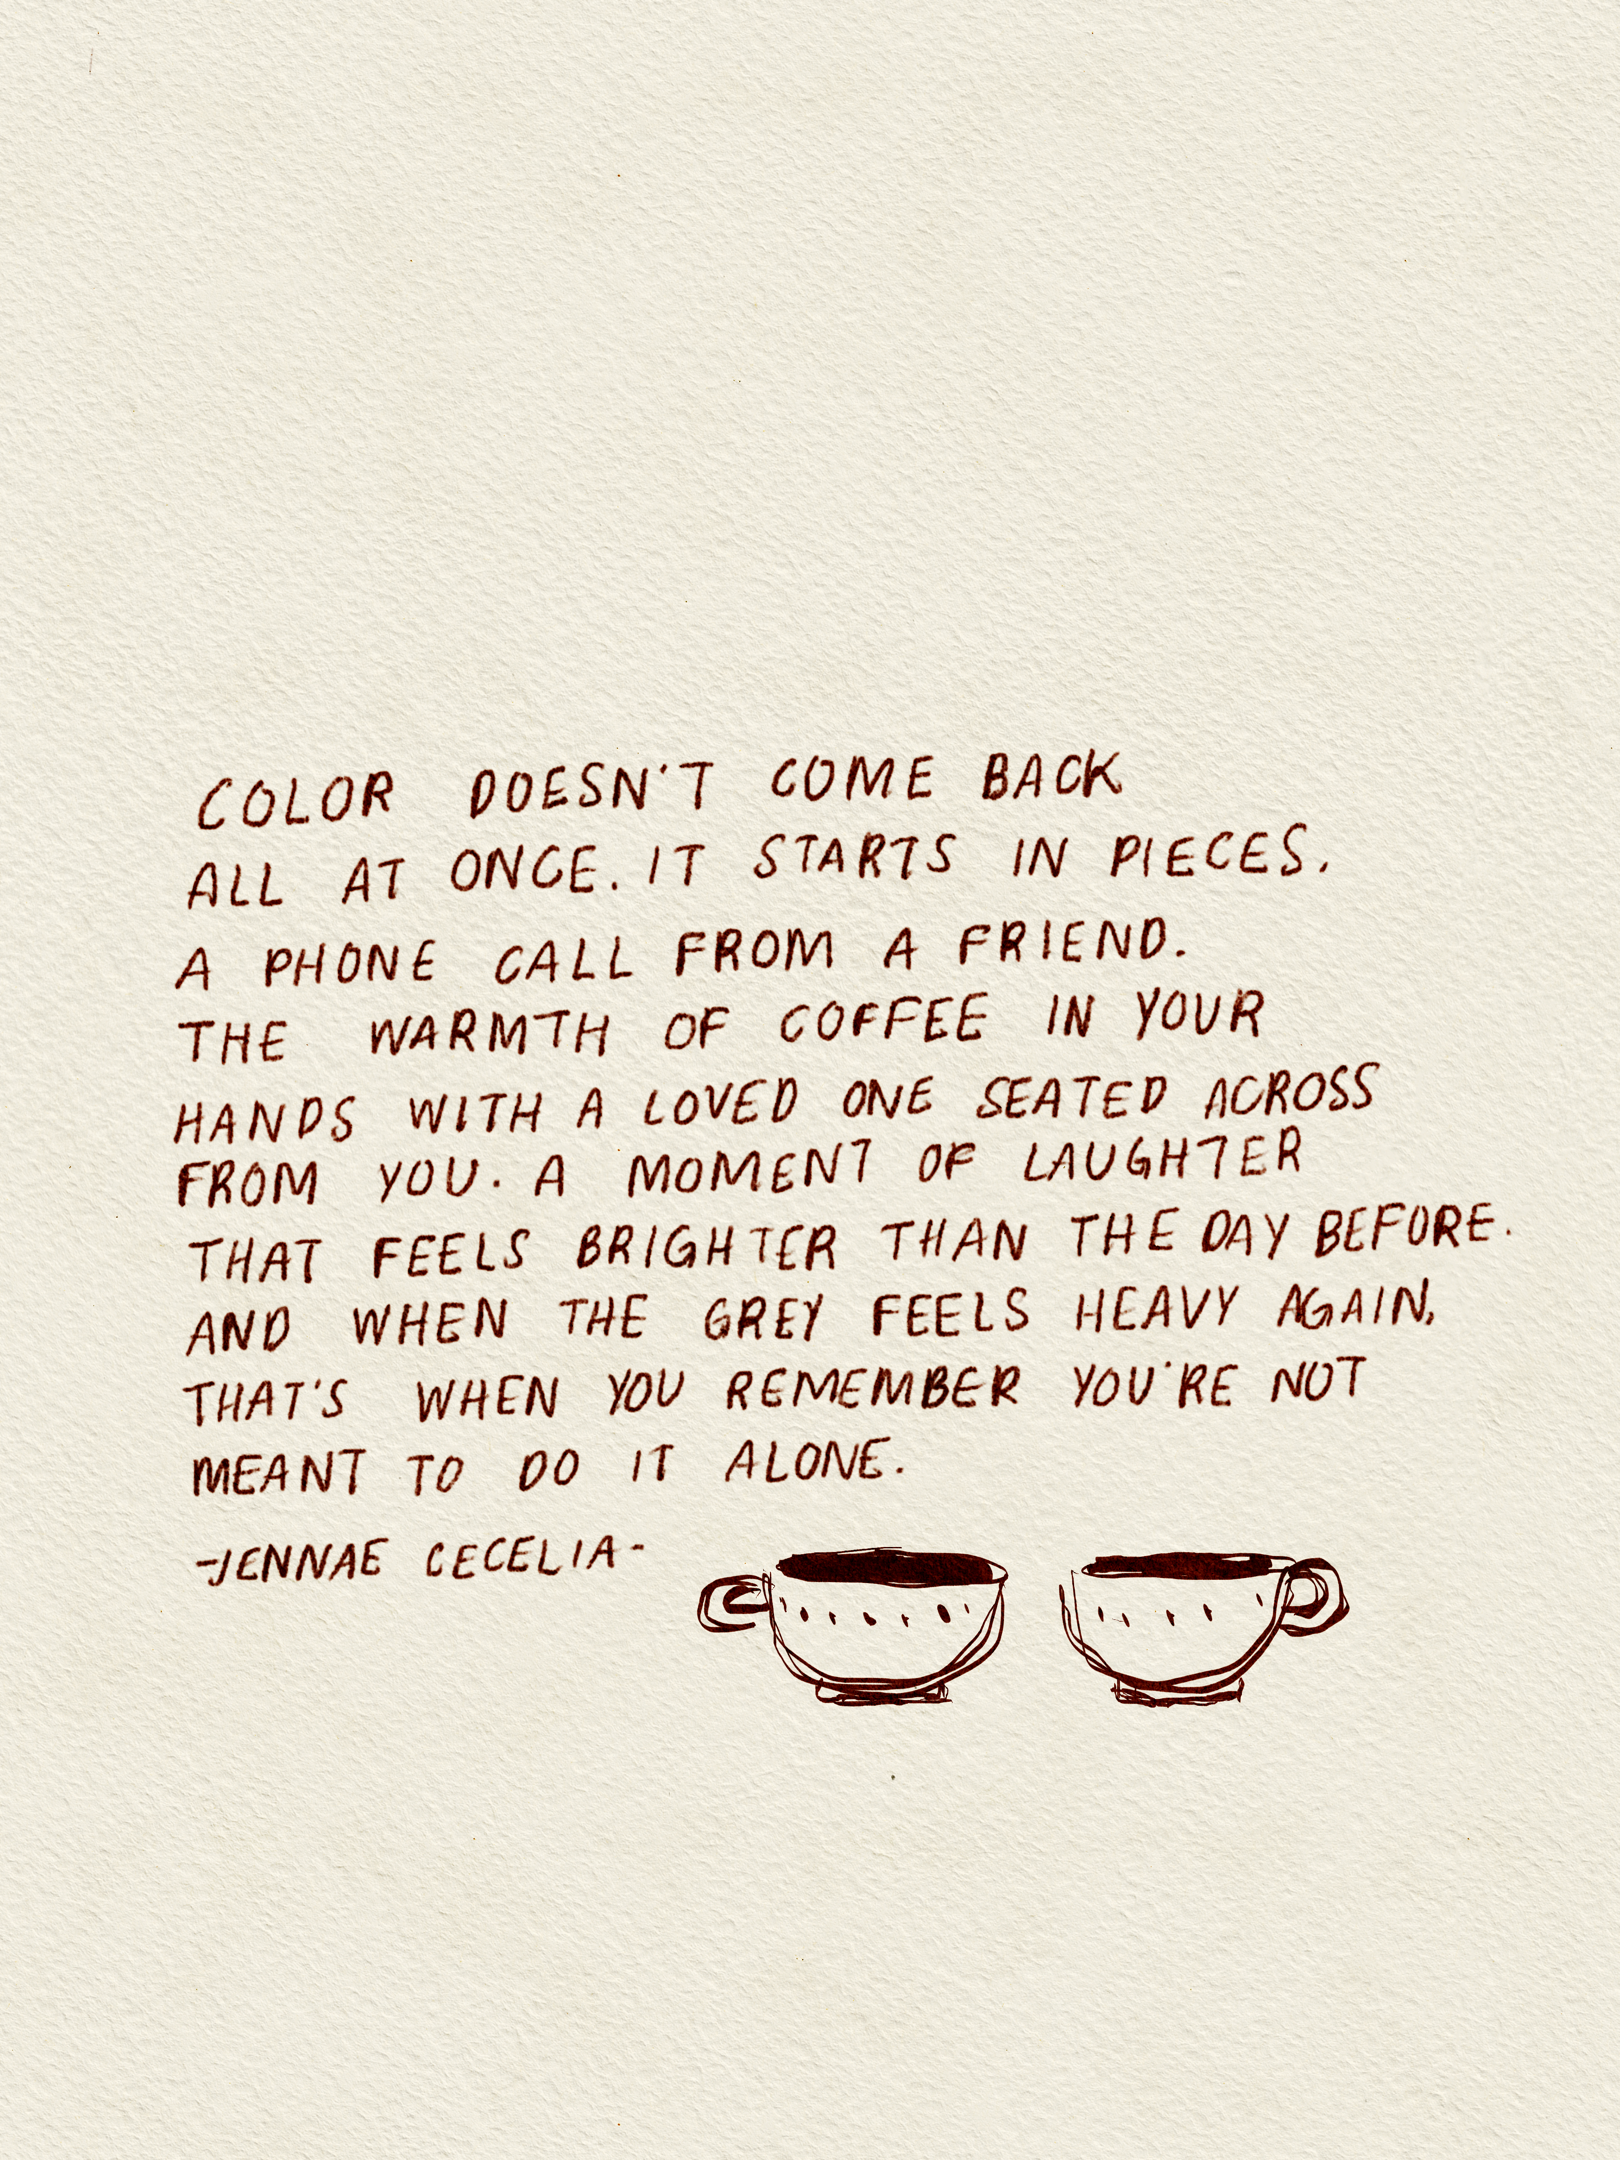 COLOR DOESN'T COME BACK
ALL AT ONCE. IT STARTS IN PIECES.
A PHONE CALL FROM A FRIEND.
THE WARMTH OF COFFEE IN YOUR
HANDS WITH A LOVED ONE SEATED ACROSS
FROM YOU. A MOMENT OF LAUGHTER
THAT FEELS BRIGHTER THAN THE DAY BEFORE.
AND WHEN THE GREY FEELS HEAVY AGAIN,
THAT'S WHEN YOU REMEMBER YOU'RE NOT
MEANT TO DO IT ALONE.
-JENNAE CECELIA-